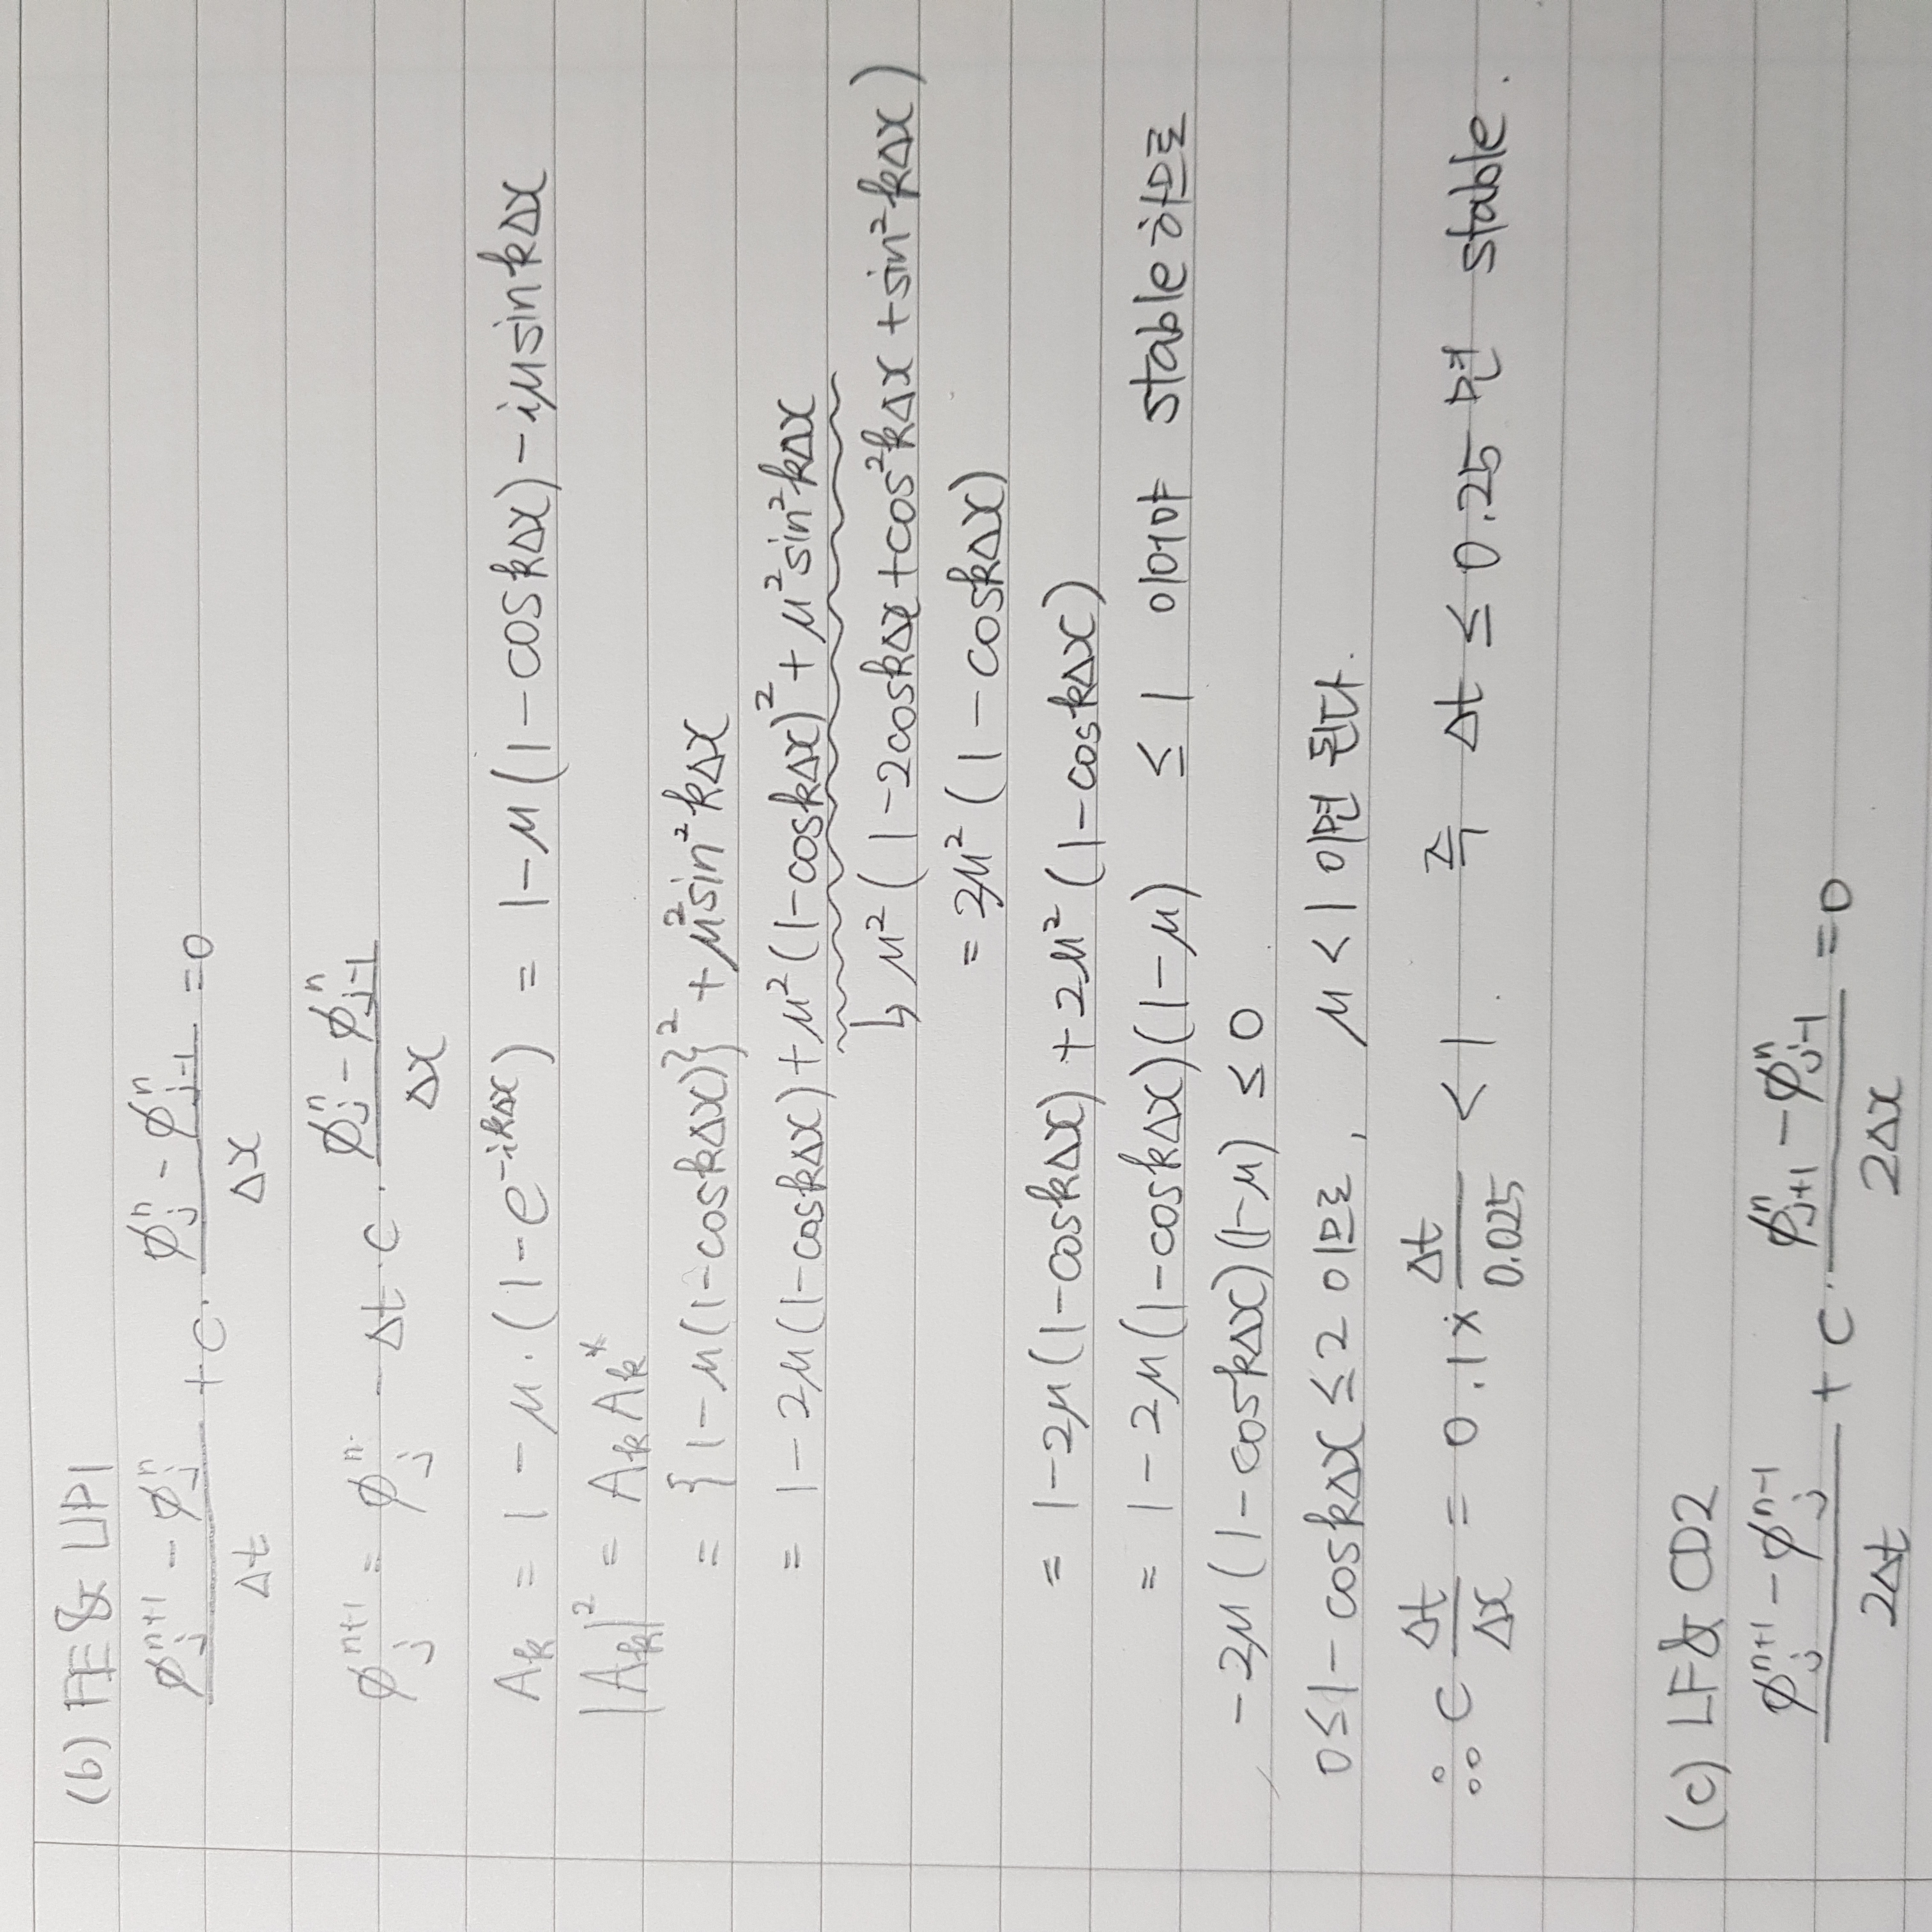 (b) FE & UP1
\frac{\phi_j^{n+1} - \phi_j^n}{\Delta t} + c \cdot \frac{\phi_j^n - \phi_{j-1}^n}{\Delta x} = 0
\phi_j^{n+1} = \phi_j^n - \Delta t \cdot c \cdot \frac{\phi_j^n - \phi_{j-1}^n}{\Delta x}
A_k = 1 - \mu \cdot (1 - e^{-ik\Delta x}) = 1 - \mu (1 - cos k\Delta x) - i\mu sin k\Delta x
|A_k|^2 = A_k A_k^*
= \{1 - \mu(1 - cos k\Delta x)\}^2 + \mu^2 sin^2 k\Delta x
= 1 - 2\mu(1 - cos k\Delta x) + \mu^2 (1 - cos k\Delta x)^2 + \mu^2 sin^2 k\Delta x
↳ \mu^2 (1 - 2cos k\Delta x + cos^2 k\Delta x + sin^2 k\Delta x)
= 2\mu^2 (1 - cos k\Delta x)
= 1 - 2\mu (1 - cos k\Delta x) + 2\mu^2 (1 - cos k\Delta x)
= 1 - 2\mu (1 - cos k\Delta x)(1 - \mu) ≤ 1 이어야 stable 하므로
- 2\mu (1 - cos k\Delta x)(1 - \mu) ≤ 0
0 ≤ 1 - cos k\Delta x ≤ 2 이므로, \mu < 1 이면 된다.
∴ c \frac{\Delta t}{\Delta x} = 0.1 × \frac{\Delta t}{0.025} < 1. 즉 \Delta t ≤ 0.25 면 stable.
(c) LF & CD2
\frac{\phi_j^{n+1} - \phi_j^{n-1}}{2\Delta t} + c \cdot \frac{\phi_{j+1}^n - \phi_{j-1}^n}{2\Delta x} = 0